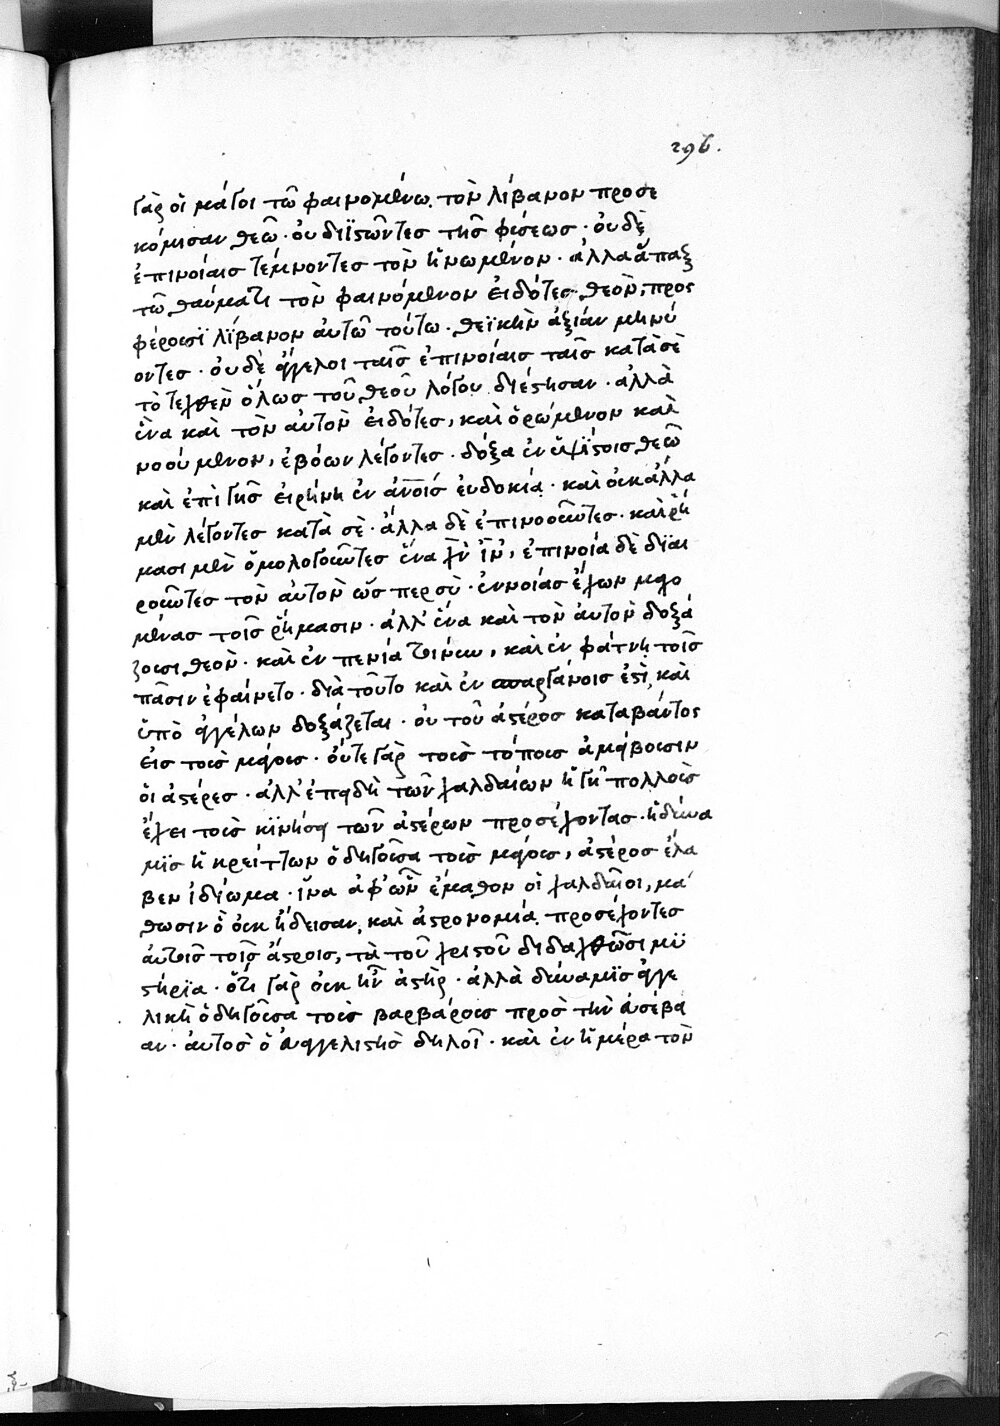 296.
γὰρ οἱ μάγοι τῶ φαινομένω. τὸν λίβανον προσε
κόμισαν θεῶ · οὐ διϊστῶντες τῆς φύσεως · οὐδὲ
ἐπινοίαις τέμνοντες τὸν ἡνωμένον · ἀλλα ἅπαξ
τῶ θαύματι τὸν φαινόμενον εἰδότες θεὸν, προσ
φέρουσϊ λίβανον αὐτῶ τούτω · θεϊκὴν ἀξίαν μηνύ
οντες · οὐδὲ ἄγγελοι ταῖς ἐπινοίαις ταῖς κατὰ σὲ
τὸ τεχθὲν ὅλως τοῦ θεοῦ λόγου διέστησαν · ἀλλὰ
ἕνα καὶ τὸν αὐτὸν εἰδότες, καὶ ὁρώμενον καὶ
νοούμενον, ἐβόων λέγοντες · δόξα ἐν ὑψίστοις θεῶ
καὶ ἐπὶ γῆς εἰρήνη ἐν ἀνοις εὐδοκία · καὶ οὐκ ἄλλα
μὲν λέγοντες κατὰ σὲ · ἄλλα δὲ ἐπινοοῦντες · καὶ ῥή
μασι μὲν ὁμολογοῦντες ἕνα χν ιν, ἐπινοία δὲ διαι
ροῦντες τὸν αὐτὸν ὥσπερ σὺ · ἐννοίας ἔχων μαχο
μένας τοῖς ῥήμασιν · ἀλλ' ἕνα καὶ τὸν αὐτὸν δοξά
ζουσι θεὸν · καὶ ἐν πενία τινων, καὶ ἐν φάτνη τοῖς
πᾶσιν ἐφαίνετο · διὰ τοῦτο καὶ ἐν σπαργάνοις ἐστὶ, καὶ
ὑπὸ ἀγγέλων δοξάζεται · οὐ τοῦ ἀστέρος καταβάντος
εἰς τοὺς μάγους · οὔτε γὰρ τοὺς τόπους ἀμείβουσιν
οἱ ἀστέρες · ἀλλ' ἐπειδὴ τῶν χαλδαίων ἡ γῆ πολλοὺς
ἔχει τοὺς κϊνήσει τῶν ἀστέρων προσέχοντας · ἡ δύνα
μϊς ἡ κρείττων ὁδηγοῦσα τοὺς μάγους, ἀστέρος ἔλα
βεν ἰδίωμα · ἵνα ἀφ' ὧν ἔμαθον οἱ χαλδαῖοι, μά
θωσιν ὃ οὐκ ἤδεισαν, καὶ ἀστρονομία προσέχοντες
αὐτοῖς τοῖς ἄστροις, τὰ τοῦ χριστοῦ διδαχθῶσι μϋ
στήρϊα · ὅτι γὰρ οὐκ ἦν ἀστὴρ · ἀλλὰ δύναμϊς ἀγγε
λικὴ ὁδηγοῦσα τοὺς βαρβάρους πρὸς τὴν εὐσέβει
αν · αὐτὸς ὁ εὐαγγελιστὴς δηλοῖ · καὶ ἐν ἡμέρα τὸν